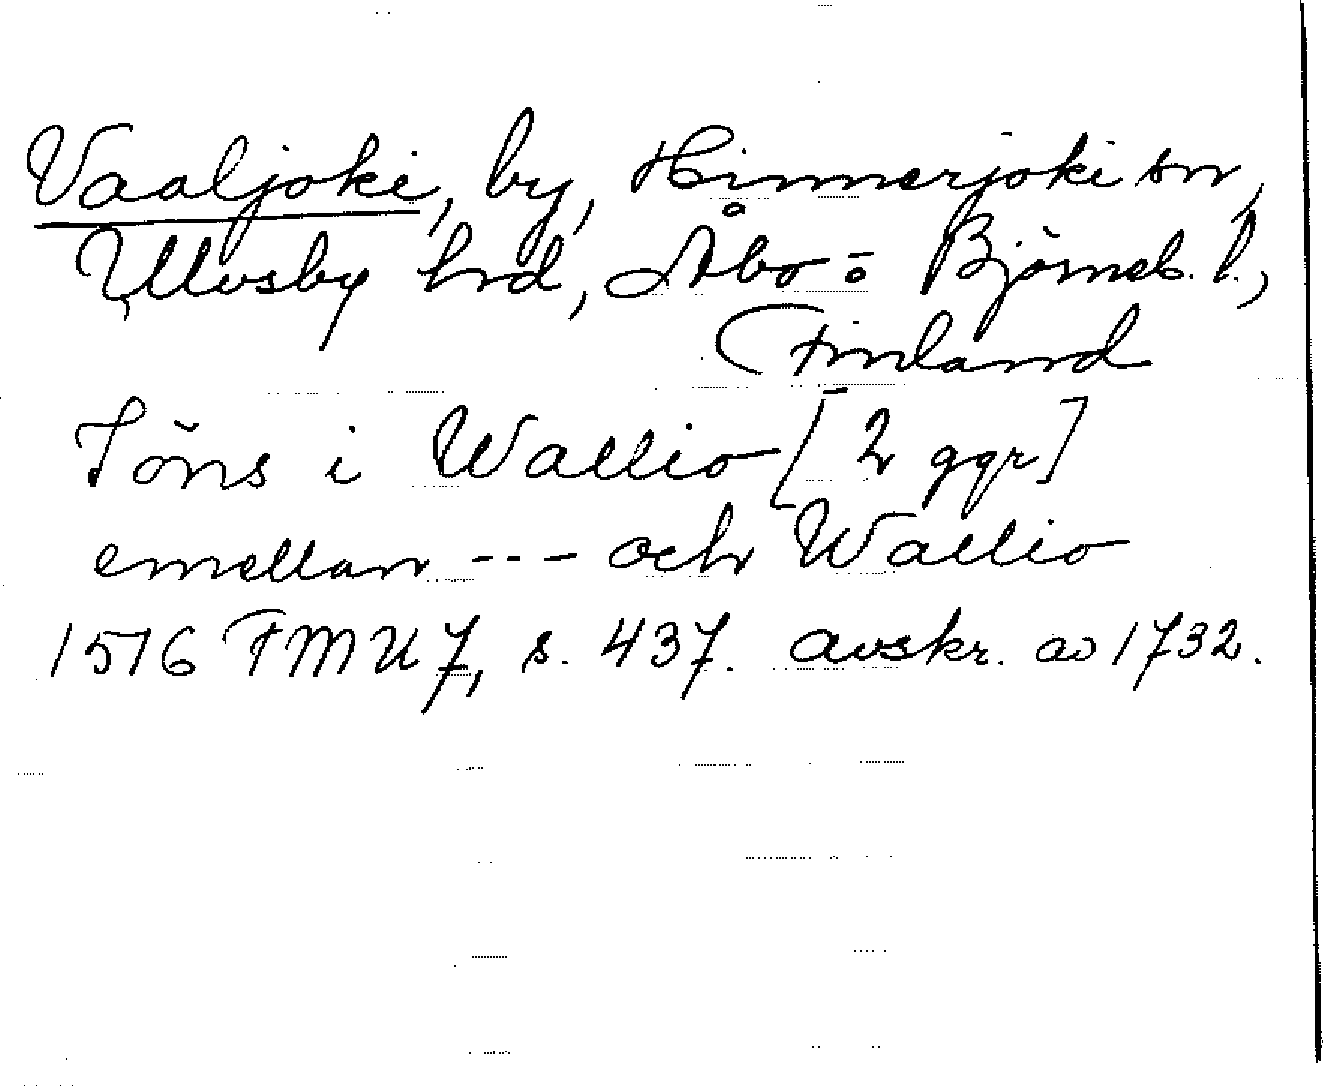 Vaaljoki, by, Hinnerjoki sn,
Ulvsby hrd, Åbo o. Björneb. l.,
Finland
Jöns i Wallio [2 ggr]
emellan --- och Wallio
1516 FMU 7, s. 437. avskr. av 1732.